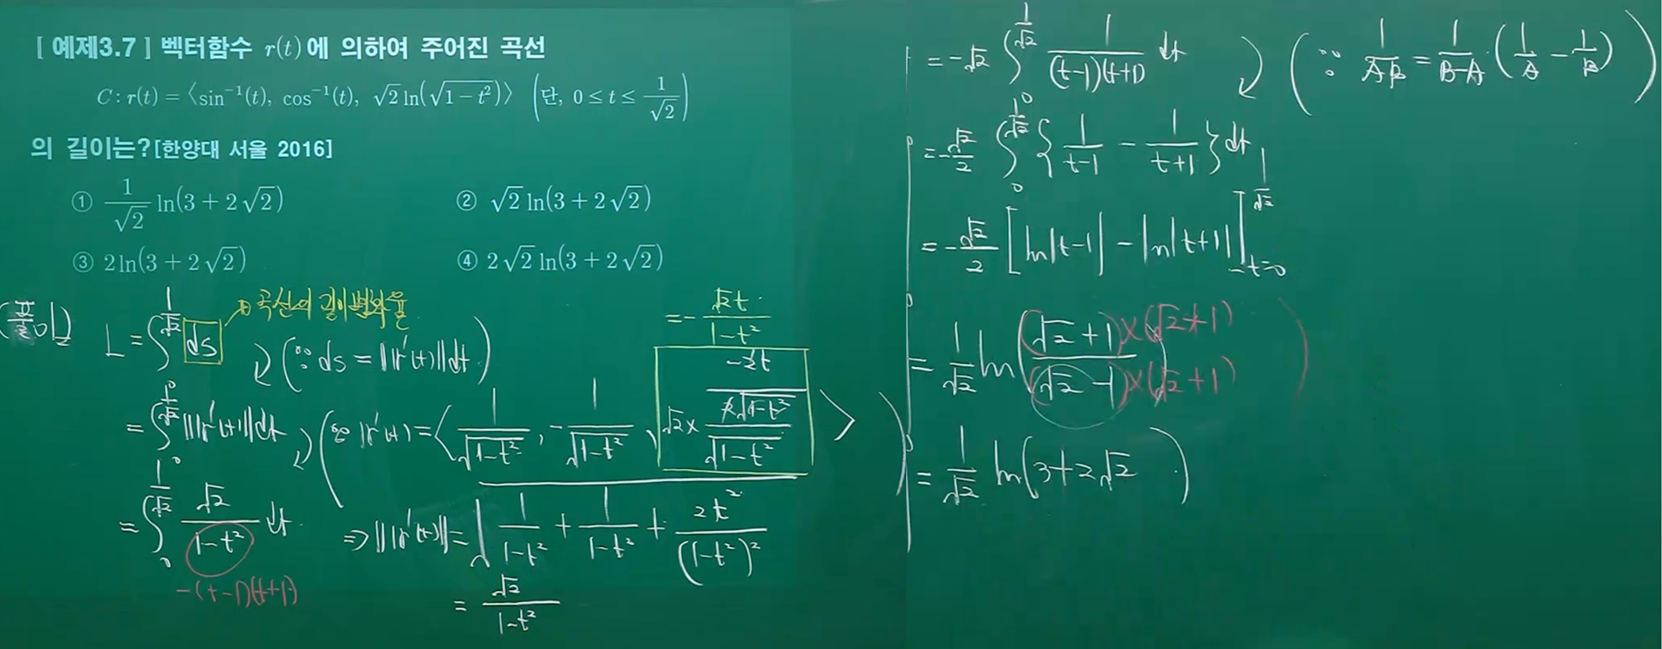 [ 예제3.7 ] 벡터함수 r(t)에 의하여 주어진 곡선
C : r(t) = ⟨sin⁻¹(t), cos⁻¹(t), √2 ln(√(1−t²))⟩ (단, 0 ≤ t ≤ 1/√2)
의 길이는? [한양대 서울 2016]
① 1/√2 ln(3+2√2) ② √2 ln(3+2√2)
③ 2 ln(3+2√2) ④ 2√2 ln(3+2√2)
풀이) L = ∫₀^(1/√2) ds → 곡선의 길이
(∵ ds = ||r'(t)||dt)
= ∫₀^(1/√2) ||r'(t)||dt (∵ r'(t) = ⟨1/√(1−t²), −1/√(1−t²), √2 × (−2t/(2√(1−t²)))/√(1−t²)⟩)
= −√2t/(1−t²)
= ∫₀^(1/√2) √2/(1−t²) dt ⇒ ||r'(t)|| = √(1/(1−t²) + 1/(1−t²) + 2t²/(1−t²)²)
−(t−1)(t+1)
= √2/(1−t²)
= −√2 ∫₀^(1/√2) 1/((t−1)(t+1)) dt (∵ 1/AB = 1/(B−A) · (1/A − 1/B))
= −√2/2 ∫₀^(1/√2) {1/(t−1) − 1/(t+1)} dt
= −√2/2 [ln|t−1| − ln|t+1|]_(t=0)^(1/√2)
= 1/√2 ln((√2+1)×(√2+1)/(√2−1)×(√2+1))
= 1/√2 ln(3+2√2)